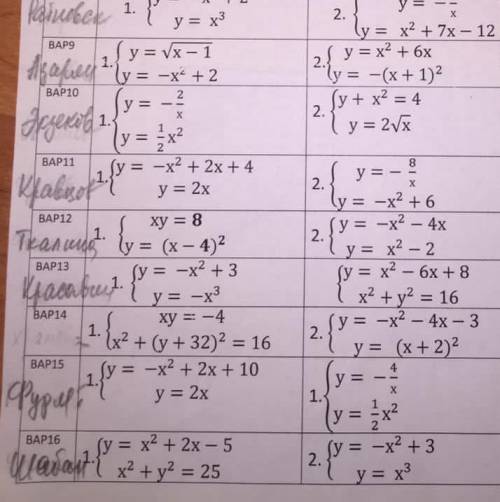 1. { y = x³
2. { y = − —/x
y = x² + 7x − 12
ВАР9
1. { y = √(x − 1)
y = −x² + 2
2. { y = x² + 6x
y = −(x + 1)²
ВАР10
1. { y = −2/x
y = 1/2 x²
2. { y + x² = 4
y = 2√x
ВАР11
Кравцов
1. { y = −x² + 2x + 4
y = 2x
2. { y = −8/x
y = −x² + 6
ВАР12
1. { xy = 8
y = (x − 4)²
2. { y = −x² − 4x
y = x² − 2
ВАР13
1. { y = −x² + 3
y = −x³
{ y = x² − 6x + 8
x² + y² = 16
ВАР14
1. { xy = −4
x² + (y + 32)² = 16
2. { y = −x² − 4x − 3
y = (x + 2)²
ВАР15
1. { y = −x² + 2x + 10
y = 2x
1. { y = −4/x
y = 1/2 x²
ВАР16
1. { y = x² + 2x − 5
x² + y² = 25
2. { y = −x² + 3
y = x³